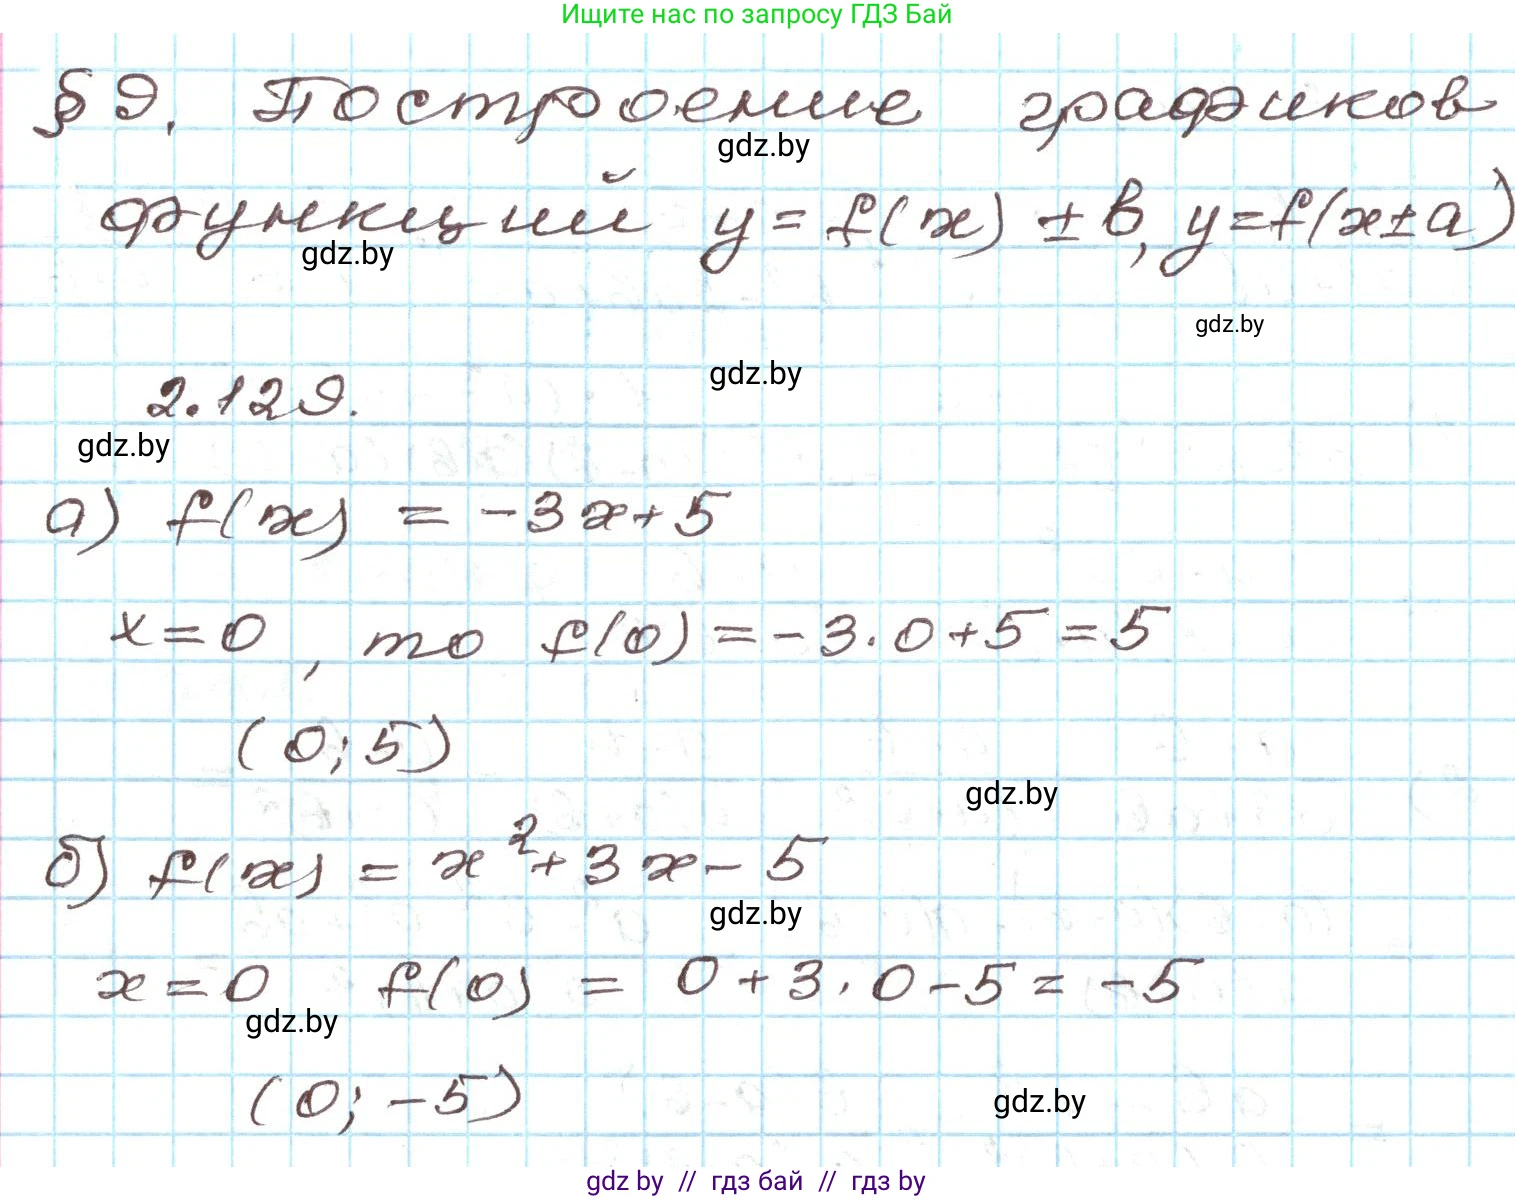 Ищите нас по запросу ГДЗ Бай
§ 9. Построение графиков
gdz.by
функций y = f(x) ± b, y = f(x ± a)
gdz.by
gdz.by
gdz.by
2.129.
gdz.by
а) f(x) = -3x + 5
x = 0, то f(0) = -3 · 0 + 5 = 5
(0; 5)
gdz.by
б) f(x) = x² + 3x - 5
gdz.by
x = 0 f(0) = 0 + 3 · 0 - 5 = -5
gdz.by
(0; -5)
gdz.by
gdz by // гдз бай // гдз by